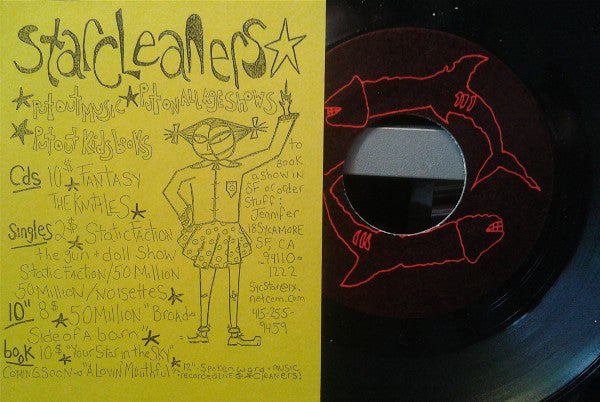 Starcleaners☆
*Put out Music *Put on all age shows
*Put out Kids books
Cds 10$ *FANTASY
THE KNITTLES*
Singles 2$ *STATIC FACTION
the gun + doll Show
STATIC FACTION/50 Million
50 Million/Noisettes*
10" 8$ *50 Million "Broad-
Side of a barn"*
book 10$ *"Your Star in the Sky"
COMING SOON→ "A Lovin Mouthful"* 12" Spoken word + music
recorded LIVE @ *Cleaners!
to
BOOK
a show in
SF or order
Stuff:
Jennifer
18 SYCAMORE
SF, CA
94110-
1222
Sycstar@ix.
netcom.com
415-255-
9459